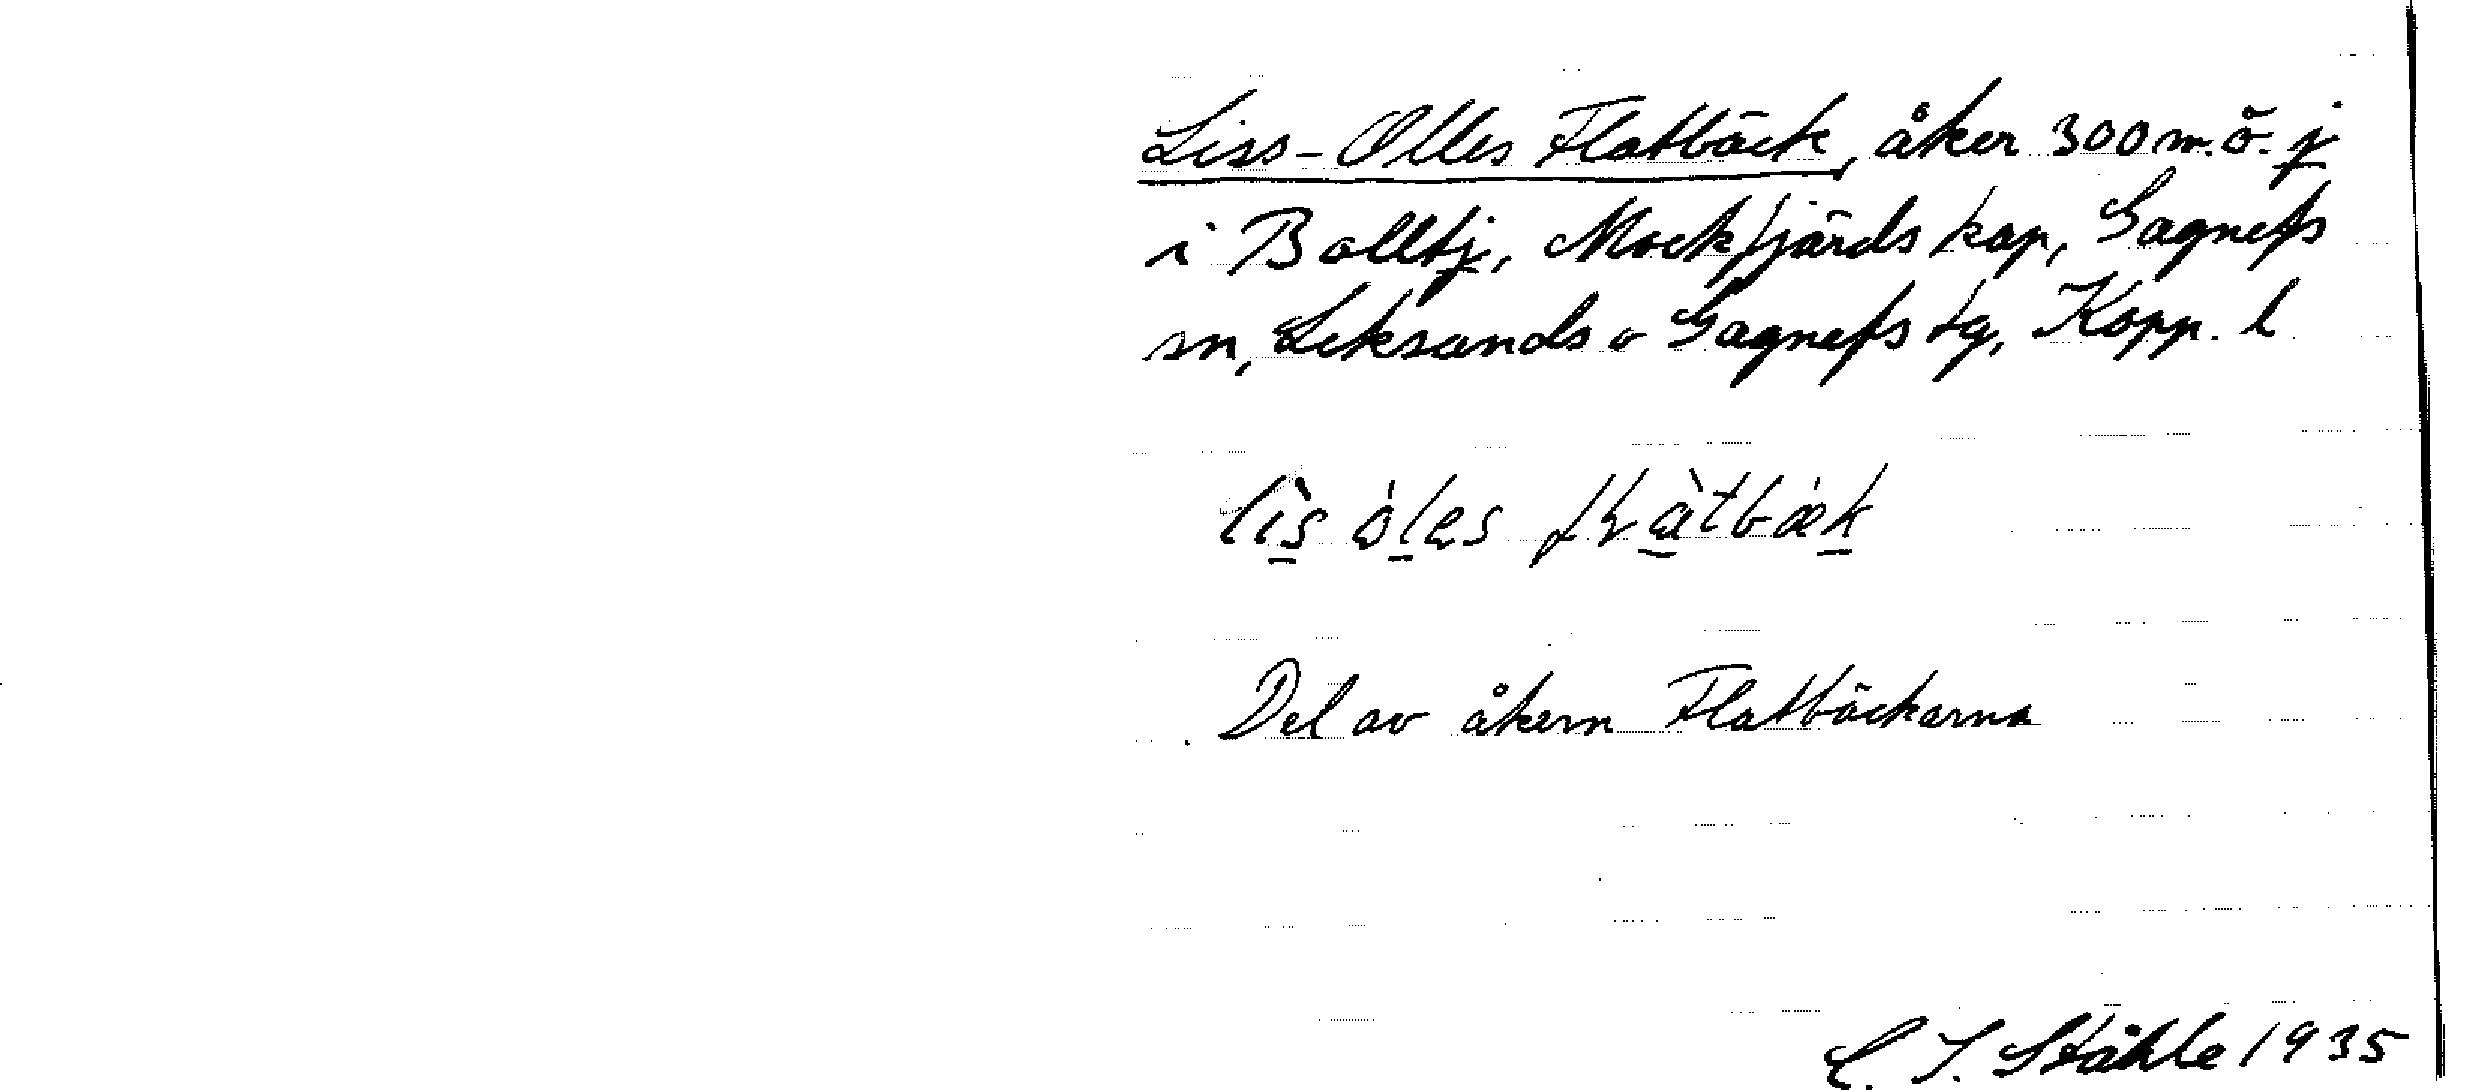 Liss-Olles Flatbäck, åker 300 m. ö. j
i Balltj, Mockfjärds kap, Gagnefs
sn, Leksands o Gagnefs tg, Kopp. l
lìs óles
Del av åkern Flatbäckarna
C. I. Ståhle 1935